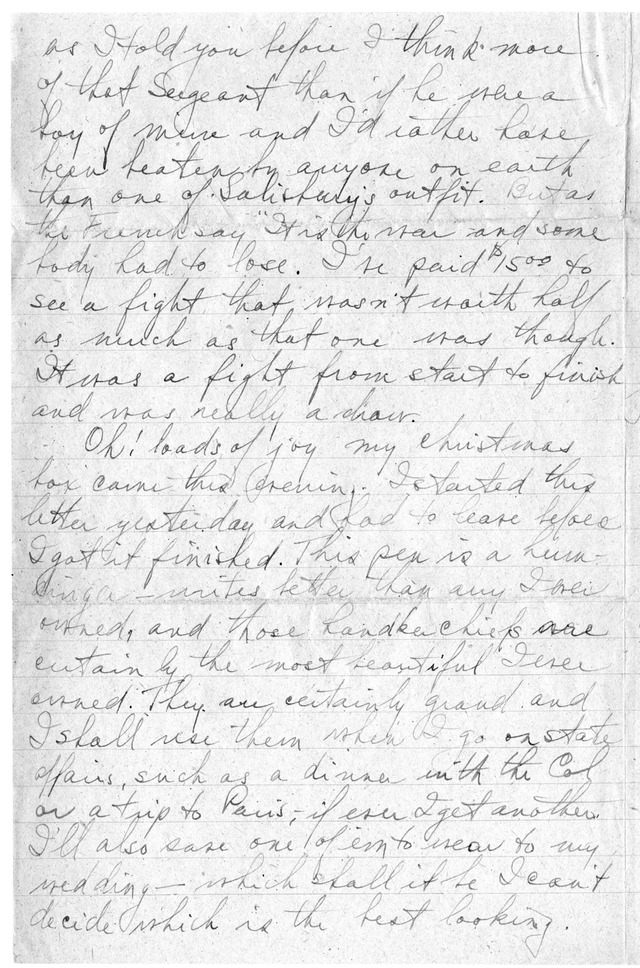 as I told you before I think more
of that Sergeant than if he were a
boy of mine and I'd rather have
been beaten by anyone on earth
than one of Salisbury's outfit. But as
the French say "It is the war and some
body had to lose. I've paid $15 00 to
see a fight that wasn't worth half
as much as that one was though.
It was a fight from start to finish
and was really a draw.
Oh! loads of joy my christmas
box came this evening. I started this
letter yesterday and had to leave before
I got it finished. This pen is a hum-
dinger - writes better than any I ever
owned, and those handkerchiefs are
certainly the most beautiful I ever
owned. They are certainly grand and
I shall use them when I go on state
affairs, such as a dinner with the Col
or a trip to Paris, - if ever I get another.
I'll also save one of em to wear to my
wedding - which shall it be I can't
decide which is the best looking.